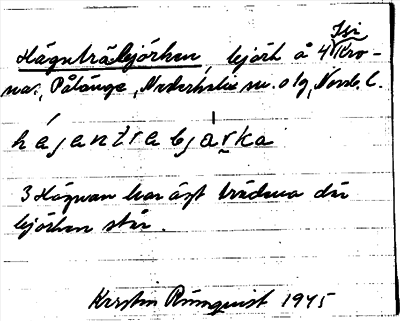 Isi
Hägnträbjörken, björk å 4 Kro-
nar, Pålänge, Nederkalix sn. o tg, Norrb. l.
hagantrabjarka
3 Hägnan har ägt träderna där
björken står.
Kerstin Rönnquist 1945